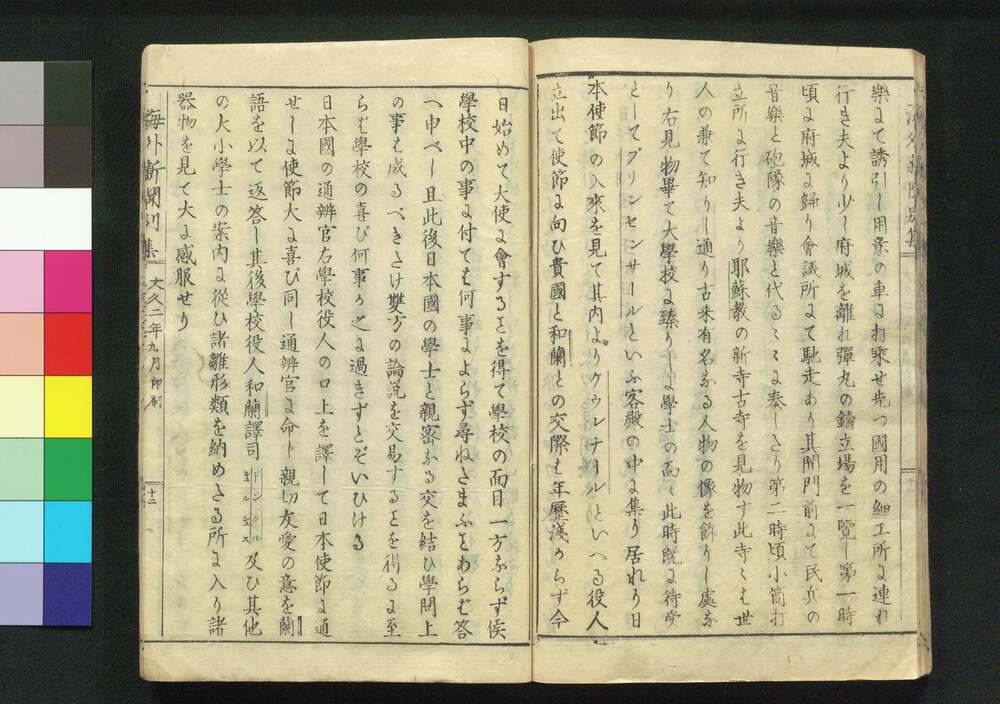 樂にて誘引し用意の車に打乘せ先つ國用の細工所に連れ
行き夫より少し府城を離れ彈丸の鑄立場を一覽し第一時
頃に府城に歸り會議所にて馳走あり其開門前にて民兵の
音樂と砲隊の音樂と代る〻〻に奏したり第二時頃小筒打
立所に行き夫より耶蘇教の新寺古寺を見物す此寺〻は世
人の兼て知りし通り古来有名なる人物の像を飾りし處な
り右見物畢て大學校に臻りしに學士の面〻此時既に待受
としてプリンセンサールといふ客殿の中に集り居れり日
本使節の入來を見て其内よりケウルナトールといへる役人
立出て使節に向ひ貴國と和蘭との交際は年歴淺からす今
日始めて大使に會するヿを得て學校の面目一方ならす候
學校中の事に付ては何事によらず尋ねたまふヿあらば答
へ申べし且此後日本國の學士と親密なる交を結ひ學問上
の事は成るべきたけ雙方の論説を交易するヿを得るに至
らば學校の喜び何事か之に過きすとぞいひける
日本國の通辨官右學校役人の口上を譯して日本使節に通
せしに使節大に喜び同し通辨官に命し親切友愛の意を蘭
語を以て返答し其後學校役人和蘭譯司ドンクルキルシユス及ひ其他
の大小學士の案内に從ひ諸雛形類を納めたる所に入り諸
器物を見て大に感服せり
海外新聞別集
文久二年九月印刷
十二